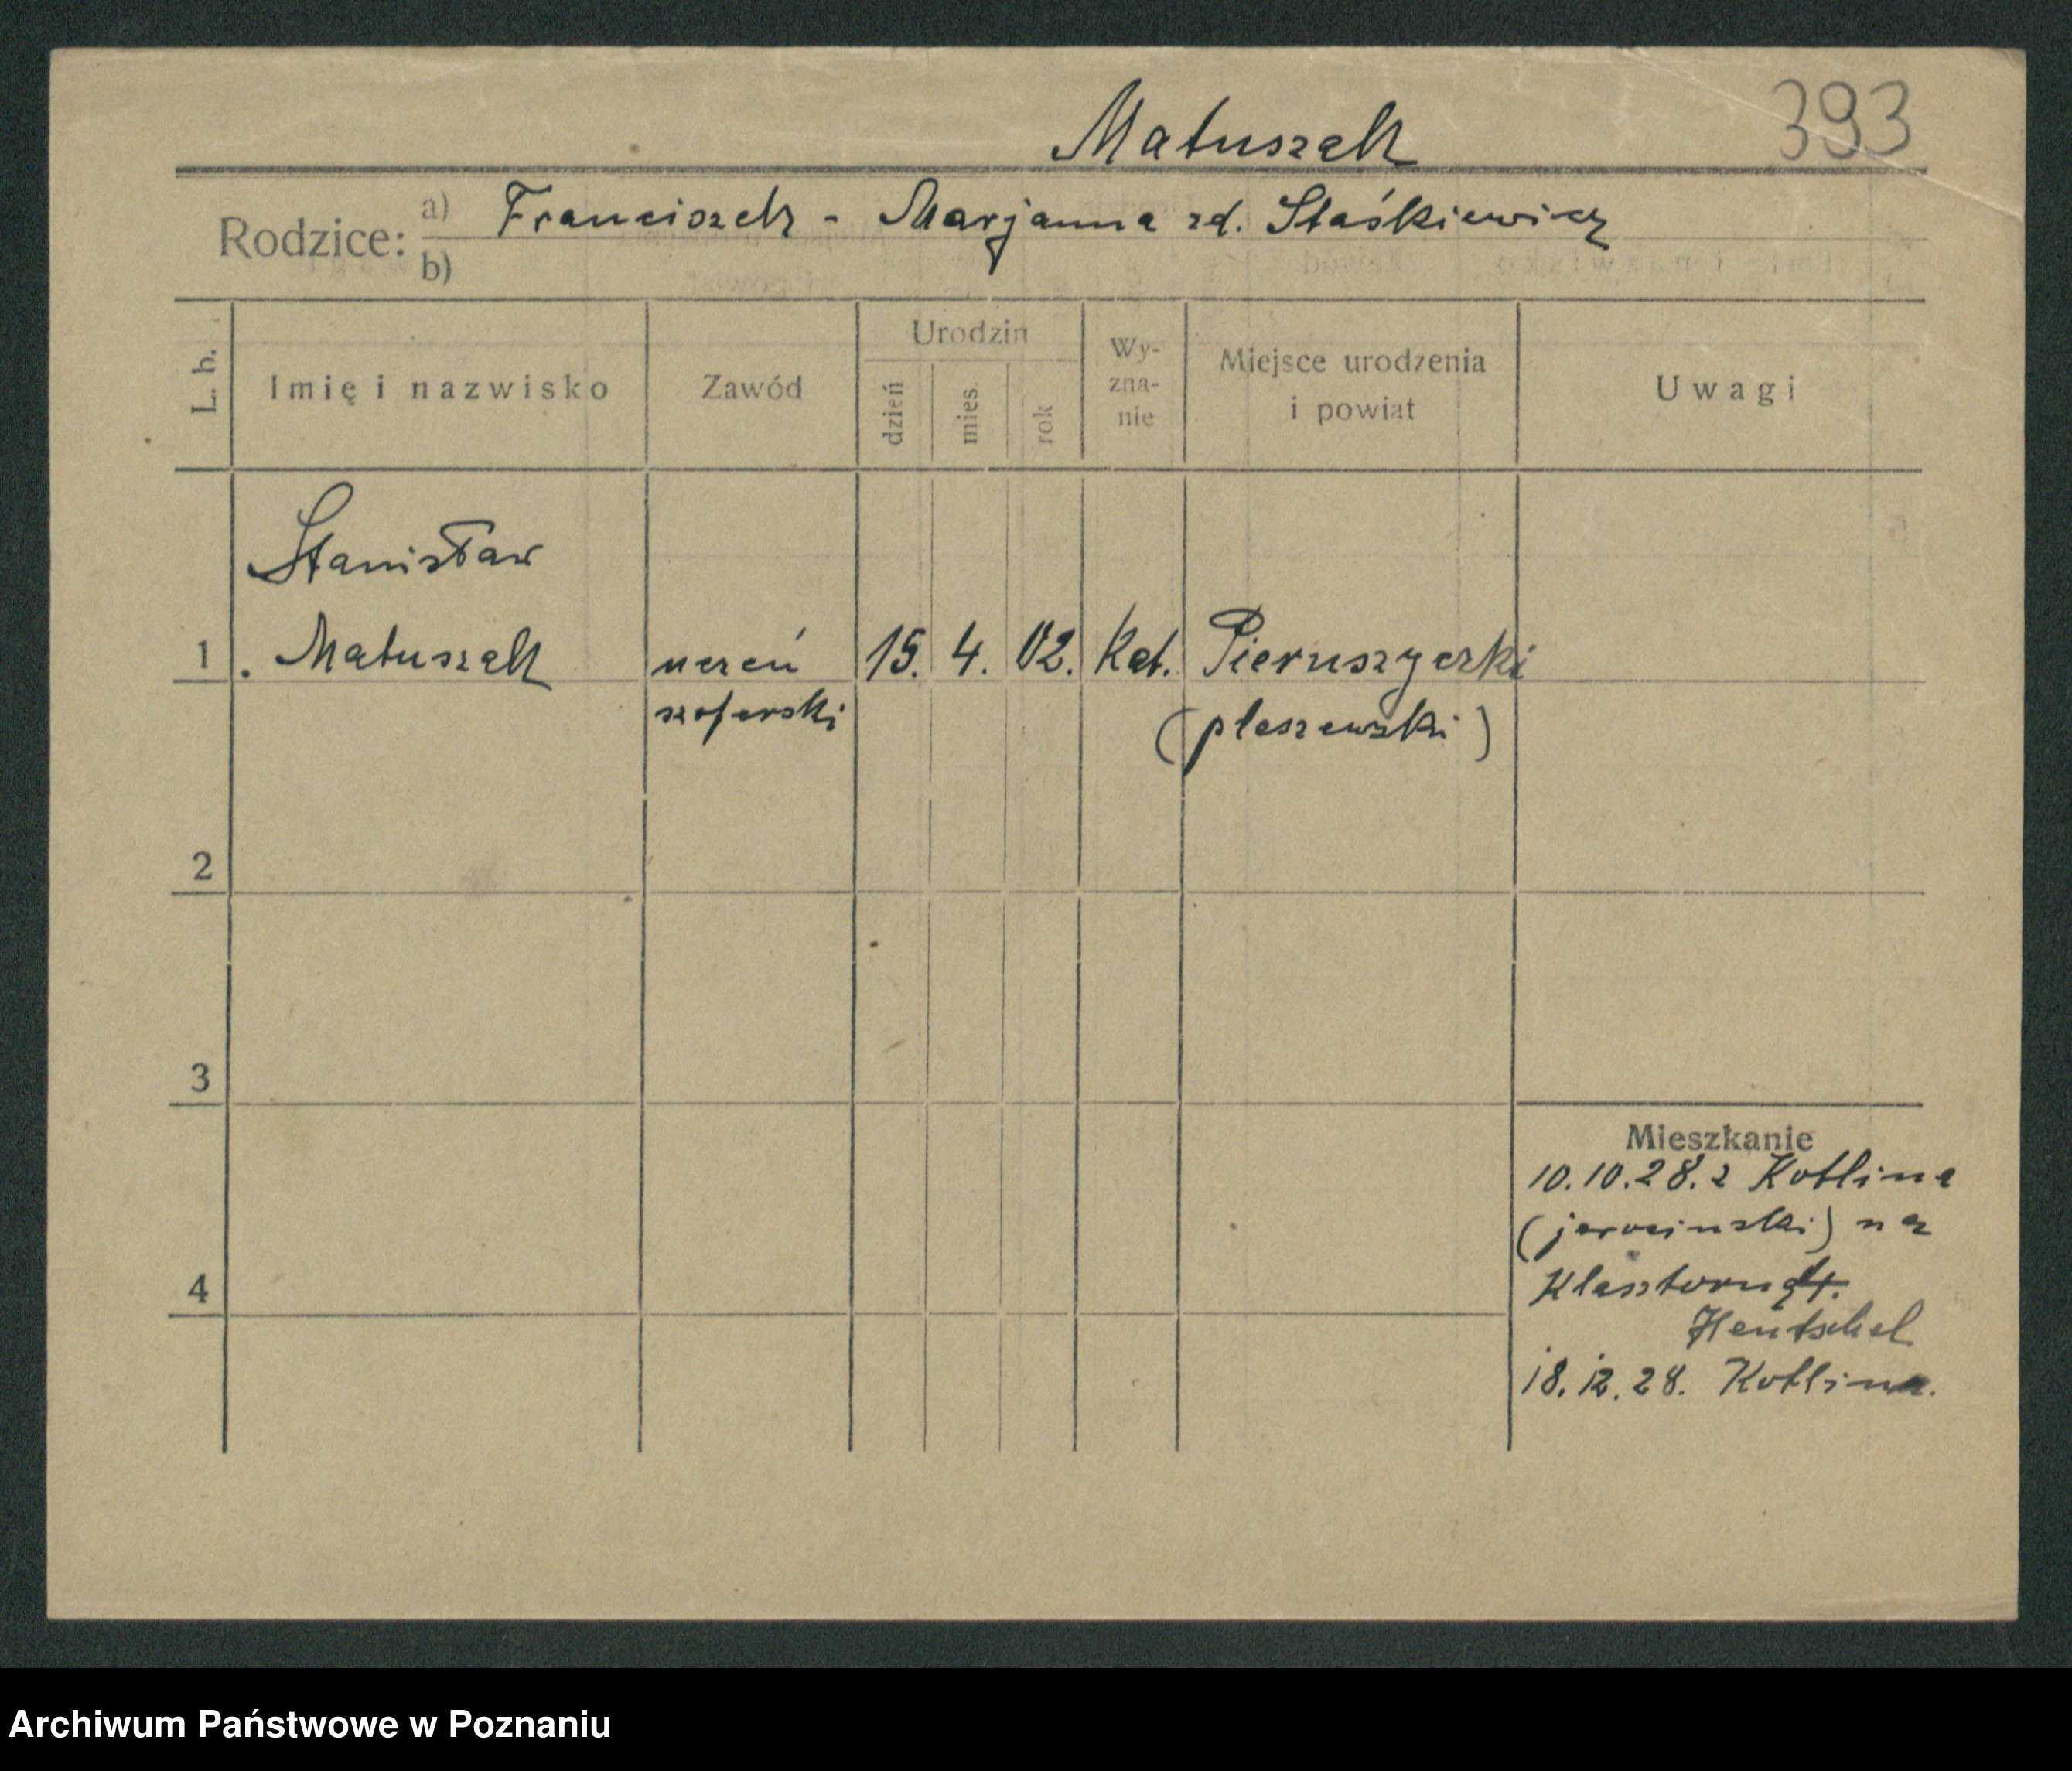 Matuszak
393
Rodzice: a) Franciszek - Marjanna zd. Staśkiewicz
b)
L. b.
Imię i nazwisko
Zawód
Urodzin
dzień
mies.
rok
Wy-
zna-
nie
Miejsce urodzenia
i powiat
Uwagi
Stanisław
1 . Matuszak uczeń 15. 4. 02. Kat. Pieruszyczki
szoferski (pleszewski)
2
3
4
Mieszkanie
10.10.28. z Kotlina
(jarocinski) na
Klasztorną 4.
Hentschel
18.12.28. Kotlina.
Archiwum Państwowe w Poznaniu